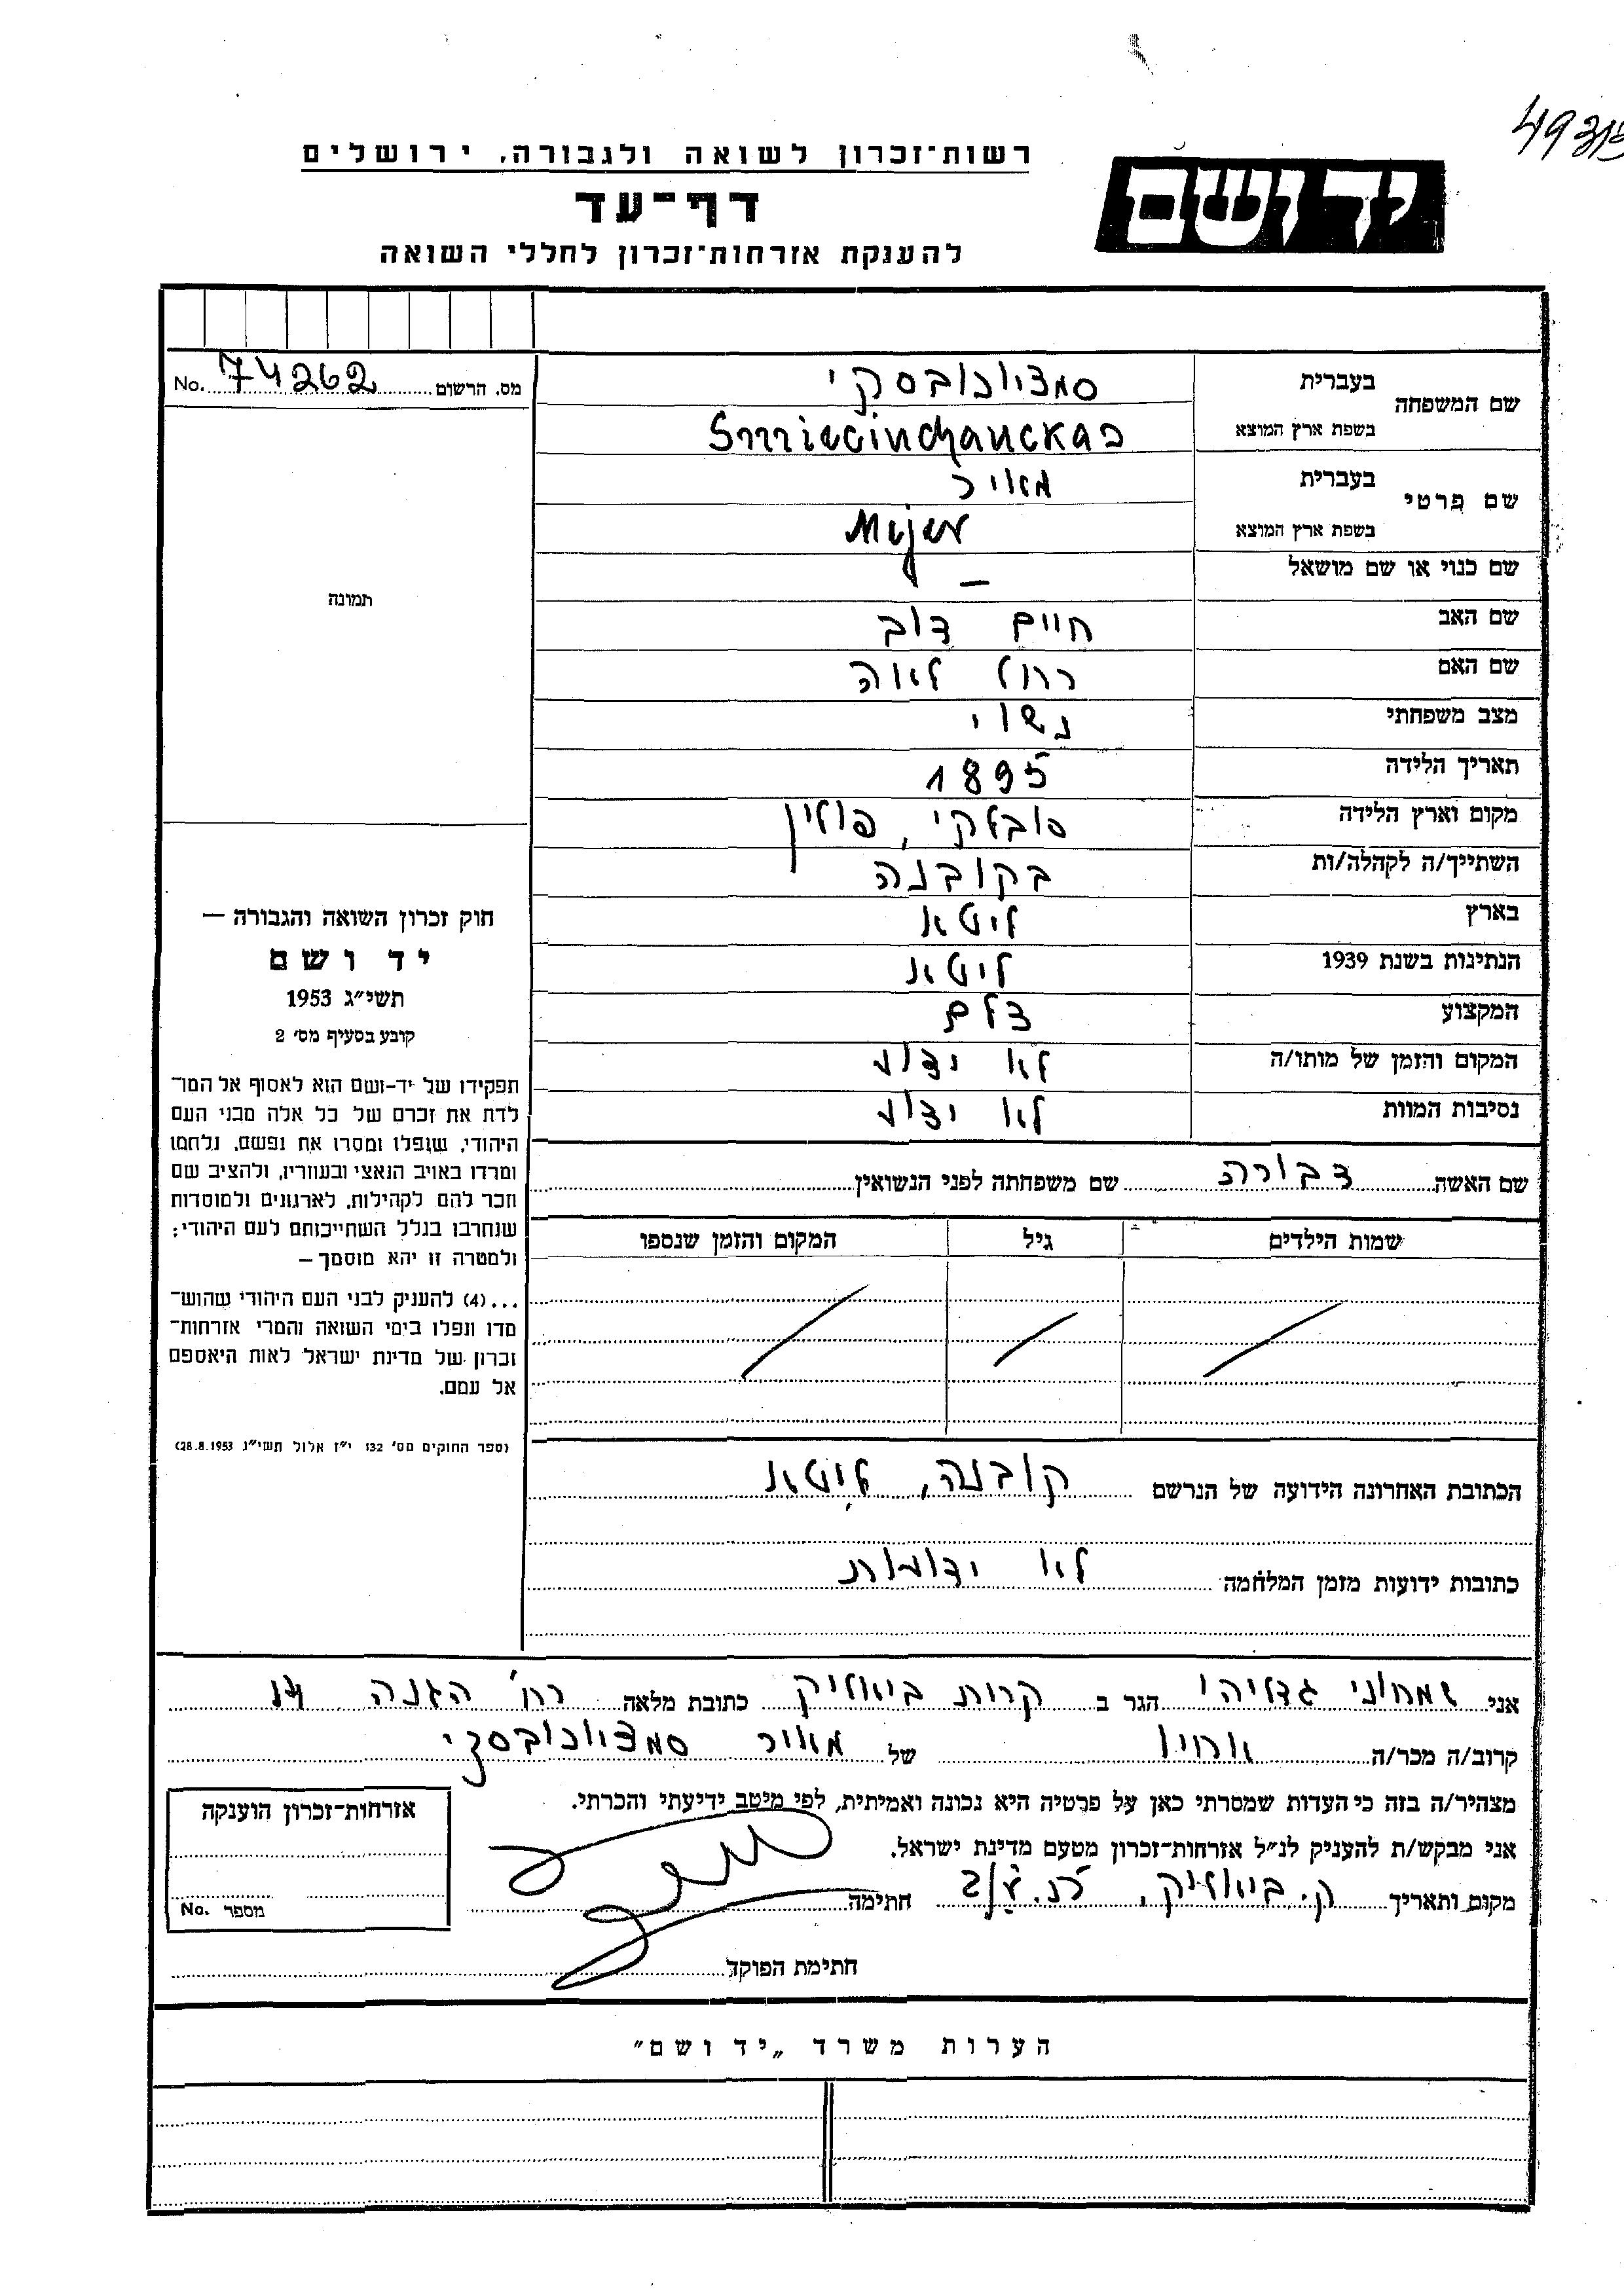 49315
רשות־זכרון לשואה ולגבורה, ירושלים
יד ושם
דף־עד
להענקת אזרחות־זכרון לחללי השואה
מס. הרשום 74262 No.
שם המשפחה
בעברית
בשפת ארץ המוצא
שם פרטי
בעברית מאיר
בשפת ארץ המוצא Mejer
שם כנוי או שם מושאל –
שם האב חיים דוב
שם האם רחל לאה
מצב משפחתי נשוי
תאריך הלידה 1895
מקום וארץ הלידה סובלקי, פולין
השתייך/ה לקהלה/ות בקובנה
בארץ ליטא
הנתינות בשנת 1939 ליטא
המקצוע צלם
המקום והזמן של מותו/ה לא ידוע
נסיבות המוות לא ידוע
שם האשה דבורה שם משפחתה לפני הנשואין
שמות הילדים גיל המקום והזמן שנספו
הכתובת האחרונה הידועה של הנרשם קובנה, ליטא
כתובות ידועות מזמן המלחמה לא ידועות
תמונה
חוק זכרון השואה והגבורה —
יד ושם
תשי״ג 1953
קובע בסעיף מס׳ 2
תפקידו של יד-ושם הוא לאסוף אל המו־
לדת את זכרם של כל אלה מבני העם
היהודי, שנפלו ומסרו את נפשם, נלחמו
ומרדו באויב הנאצי ובעוזריו, ולהציב שם
וזכר להם לקהילות, לארגונים ולמוסדות
שנחרבו בגלל השתייכותם לעם היהודי;
ולמטרה זו יהא מוסמך —
...(4) להעניק לבני העם היהודי שהוש־
מדו ונפלו בימי השואה והמרי אזרחות־
זכרון של מדינת ישראל לאות היאספם
אל עמם.
(ספר החוקים מס׳ 132 י״ז אלול תשי״ג 28.8.1953)
אני שמחוני גדליהו הגר ב קרית ביאליק כתובת מלאה רח׳ הגנה
קרוב/ה מכר/ה אחיו של מאיר
מצהיר/ה בזה כי העדות שמסרתי כאן על פרטיה היא נכונה ואמיתית, לפי מיטב ידיעתי והכרתי.
אני מבקש/ת להעניק לנ״ל אזרחות־זכרון מטעם מדינת ישראל.
מקום ותאריך ק. ביאליק, חתימה
חתימת הפוקד
אזרחות־זכרון הוענקה
מספר No.
הערות משרד „יד ושם״